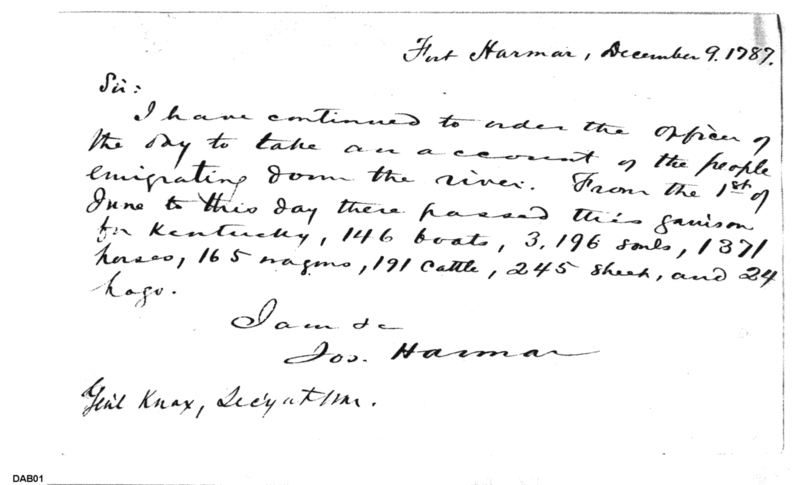 Fort Harmar, December 9. 1787.
Sir:
I have continued to order the officer of
the day to take an account of the people
emigrating down the river. From the 1st of
June to this day there passed this garrison
for Kentucky, 146 boats, 3,196 souls, 1371
horses, 165 wagons, 191 cattle, 245 sheep, and 24
hogs.
I am &c
Jos. Harmar
Gen'l Knox, Sec'y at War.
DAB01